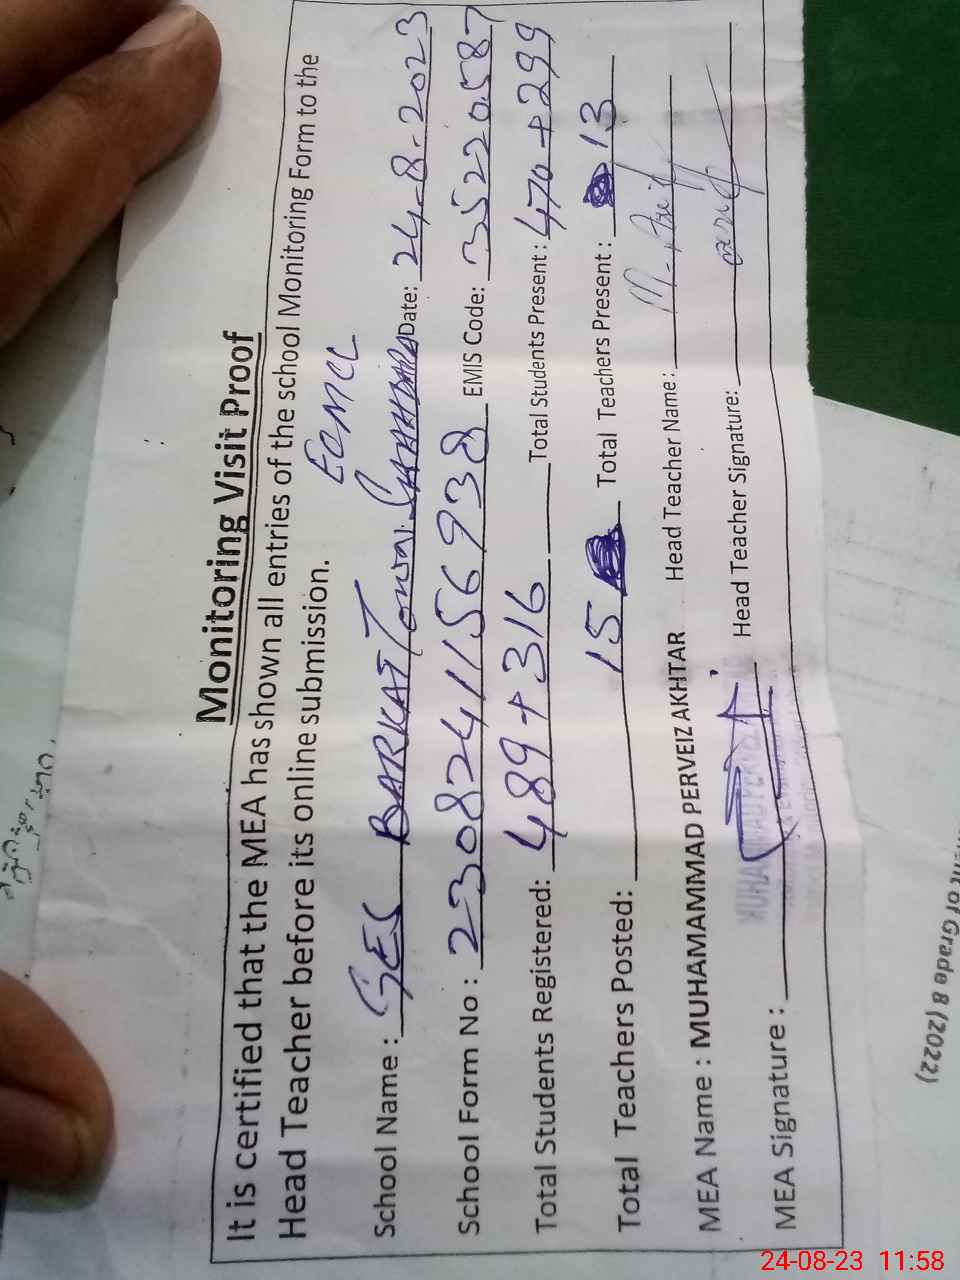 Monitoring Visit Proof
It is certified that the MEA has shown all entries of the school Monitoring Form to the
Head Teacher before its online submission.
School Name : GES BARKAT Date: 24-8-2023
School Form No : 2308241156938 EMIS Code: 35220587
Total Students Registered: 489+316 Total Students Present : 470+299
Total Teachers Posted: 15 Total Teachers Present : 13
MEA Name : MUHAMAMMAD PERVEIZ AKHTAR Head Teacher Name: M. Arif
MEA Signature : Head Teacher Signature:
of Grade 8 (2022)
24-08-23 11:58